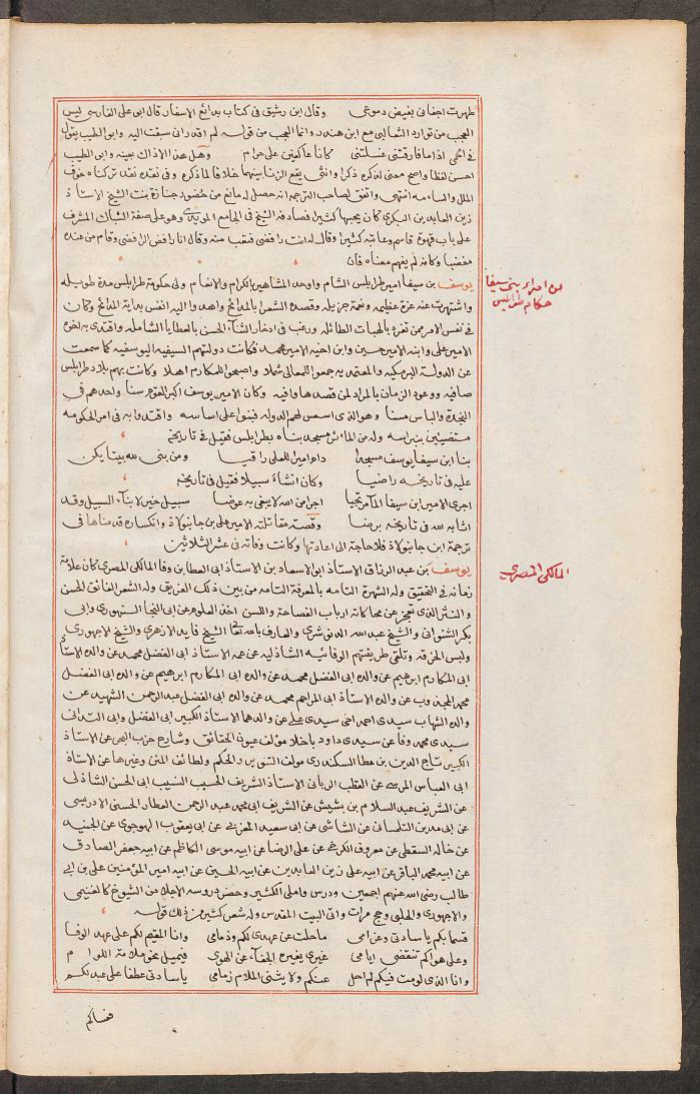 طهرت اجفاني بفيض دموعي وقال ابن رشيق في كتاب بدائع الاسفار قال ابي على الفارسي ليس
العجب من توارد الثعالبي مع ابن هندر وانما العجب من قوله لم اقدر اني سبقت اليه وابو الطيب يقول
في الحمى اذا ما فارقتني غسلتني كانا عاكفين على حرام وهل هذا الا ذاك بعينه وابي الطيب
احسن لفظا واصح معنى لذكره ذكرا وانثى يقع الزنا بينهما خلافا لما ذكره وفي نقده نقد تركناه خوف
الملل والسآمه انتهى واتفق لصاحب الترجمة انه حصل له مانع من حضور جنازة بنت الشيخ الاستاذ
زين العابدين البكري كان يحبها كثيرا فصادفه الشيخ في الجامع المويدى وهو على صفة الشباك المشرف
على باب قهوة قاسم وعاتبه كثيرا وقال له انت رافضى فتعب منه وقال انا رافض الرافضى وقام من عنده
مغضبا وكانه لم يفهم معناه فان
يوسف بن سيفا امير طرابلس الشام واوحد المشاهير بالكرام والانعام ولى حكومة طرابلس مدة طويله
من امراء بني سيفا
حكام طرابلس
واشتهرت عنه عزة عظيمه ونعمة جزيله وقصده الشعرا بالمدائح واهدوا اليه انفس بداية المدائح وكان
في نفس الامر ممن تفرد بالهبات الطائله ورغب في ادخار الثناء الحسن بالعطايا الشامله واقتدى به اخوه
الامير على وابنه الامير حسين وابن اخيه الامير محمد فكانت دولتهم السيفيه اليوسفيه كما سمعت
عن الدولة البرمكيه والمعتمديه جمعوا للمعالى شملا واصبحوا للمكارم اهلا وكانت بهم بلاد طرابلس
صافيه ووعود الزمان بالمراد لمن قصدها وافيه وكان الامير يوسف اكبر القوم سنا واحدهم في
النجدة والباس مسنا وهو الذى اسس لهم الدوله فبنوا على اساسه واقتدوا به في امر الحكومه
مستضيئين بنبراسه وله من المآثر مسجد بناه بطرابلس فقيل في تاريخه
بنا ابن سيفا يوسف مسجدا دام اميرا للعلى راقيا ومن بنى لله بيتا يكن
عليه في تاريخه راضيا وكان انشاء سبيلا فقيل في تاريخه
اجرى الامير ابن سيفا الماء مرتجيا اجرا من الله لا يبغى به عوضا سبيل خير لابناء السبيل وقد
اثابه الله في تاريخه برضا وقصته مقاتلته الامير على بن جانبولاذ وانكساره قدمناها في
ترجمة ابن جانبولاذ فلا حاجة الى اعادتها وكانت وفاته في عشر الثلاثين
يوسف بن عبد الرزاق الاستاذ ابو الاسعاد بن الاستاذ ابى العطا بن وفا المالكى المصرى كان علامة
المالكى المصرى
زمانه في التحقيق وله الشهرة التامه بالمعرفة التامه من بين ذلك الفريق وله الشعر الفائق الحسن
والنثر الذى تعجز عن محاكاته ارباب الفصاحة واللسن اخذ العلوم عن ابى النجا السنهورى وابى
بكر الشنوانى والشيخ عبد الله الدنوشرى والعارف بالله تعالى الشيخ فايد الازهرى والشيخ الاجهورى
ولبس الخرقه وتلقى طريقتهم الوفائيه الشاذليه عن عمه الاستاذ ابى الفضل محمد عن والده الاستاذ
ابى المكارم ابرهيم عن والده ابى الفضل محمد عن والده ابى المكارم ابرهيم عن والده ابى الفضل
محمد المجذوب عن والده الاستاذ ابى المراحم محمد عن والده ابى الفضل عبد الرحمن الشهيد عن
والده الشهاب سيدى احمد اخى سيدى على عن والدهما الاستاذ الكبير ابى الفضل وابى التدانى
سيدى محمد وفا عن سيدى داود باخلا مولف عيون الحقائق وشارح حزب البحر عن الاستاذ
الكبير تاج الدين بن عطا السكندرى مولف التنوير والحكم ولطائف المنن وغيرها عن الاستاذ
ابى العباس المرسى عن القطب الربانى الاستاذ الشريف الحسيب النسيب ابى الحسن الشاذلى
عن الشريف عبد السلام بن بشيش عن الشريف ابى محمد عبد الرحمن العطار الحسنى الادريسى
عن ابى مدين التلمسانى عن الشاشى عن ابى سعيد المغربى عن ابى يعقوب الهوجورى عن الجنيد
عن خاله السقطى عن معروف الكرخى عن على الرضا عن ابيه موسى الكاظم عن ابيه جعفر الصادق
عن ابيه محمد الباقر عن ابيه على زين العابدين عن ابيه الحسين عن ابيه امير المؤمنين على بن ابى
طالب رضى الله عنهم اجمعين ودرس واملى الكثير وحضر دروسه الاجلاء من الشيوخ كالغنيمى
والاجهورى والحلبى وحج مرات واتى البيت المقدس وله شعر كثير من ذلك قوله
قسما بكم يا سادتى وغرامى ما حلت عن عهدى لكم وذمامى وانا المقيم لكم على عهد الوفا
وعلى هواكم تنقضى ايامى غيرى يغيره الجفاء عن الهوى فيميل نحو ملامة اللوام
وانا الذى لو مت فيكم لم احل عنكم ولا يثنى الملام زمامى يا سادتى عطفا على عبد لكم